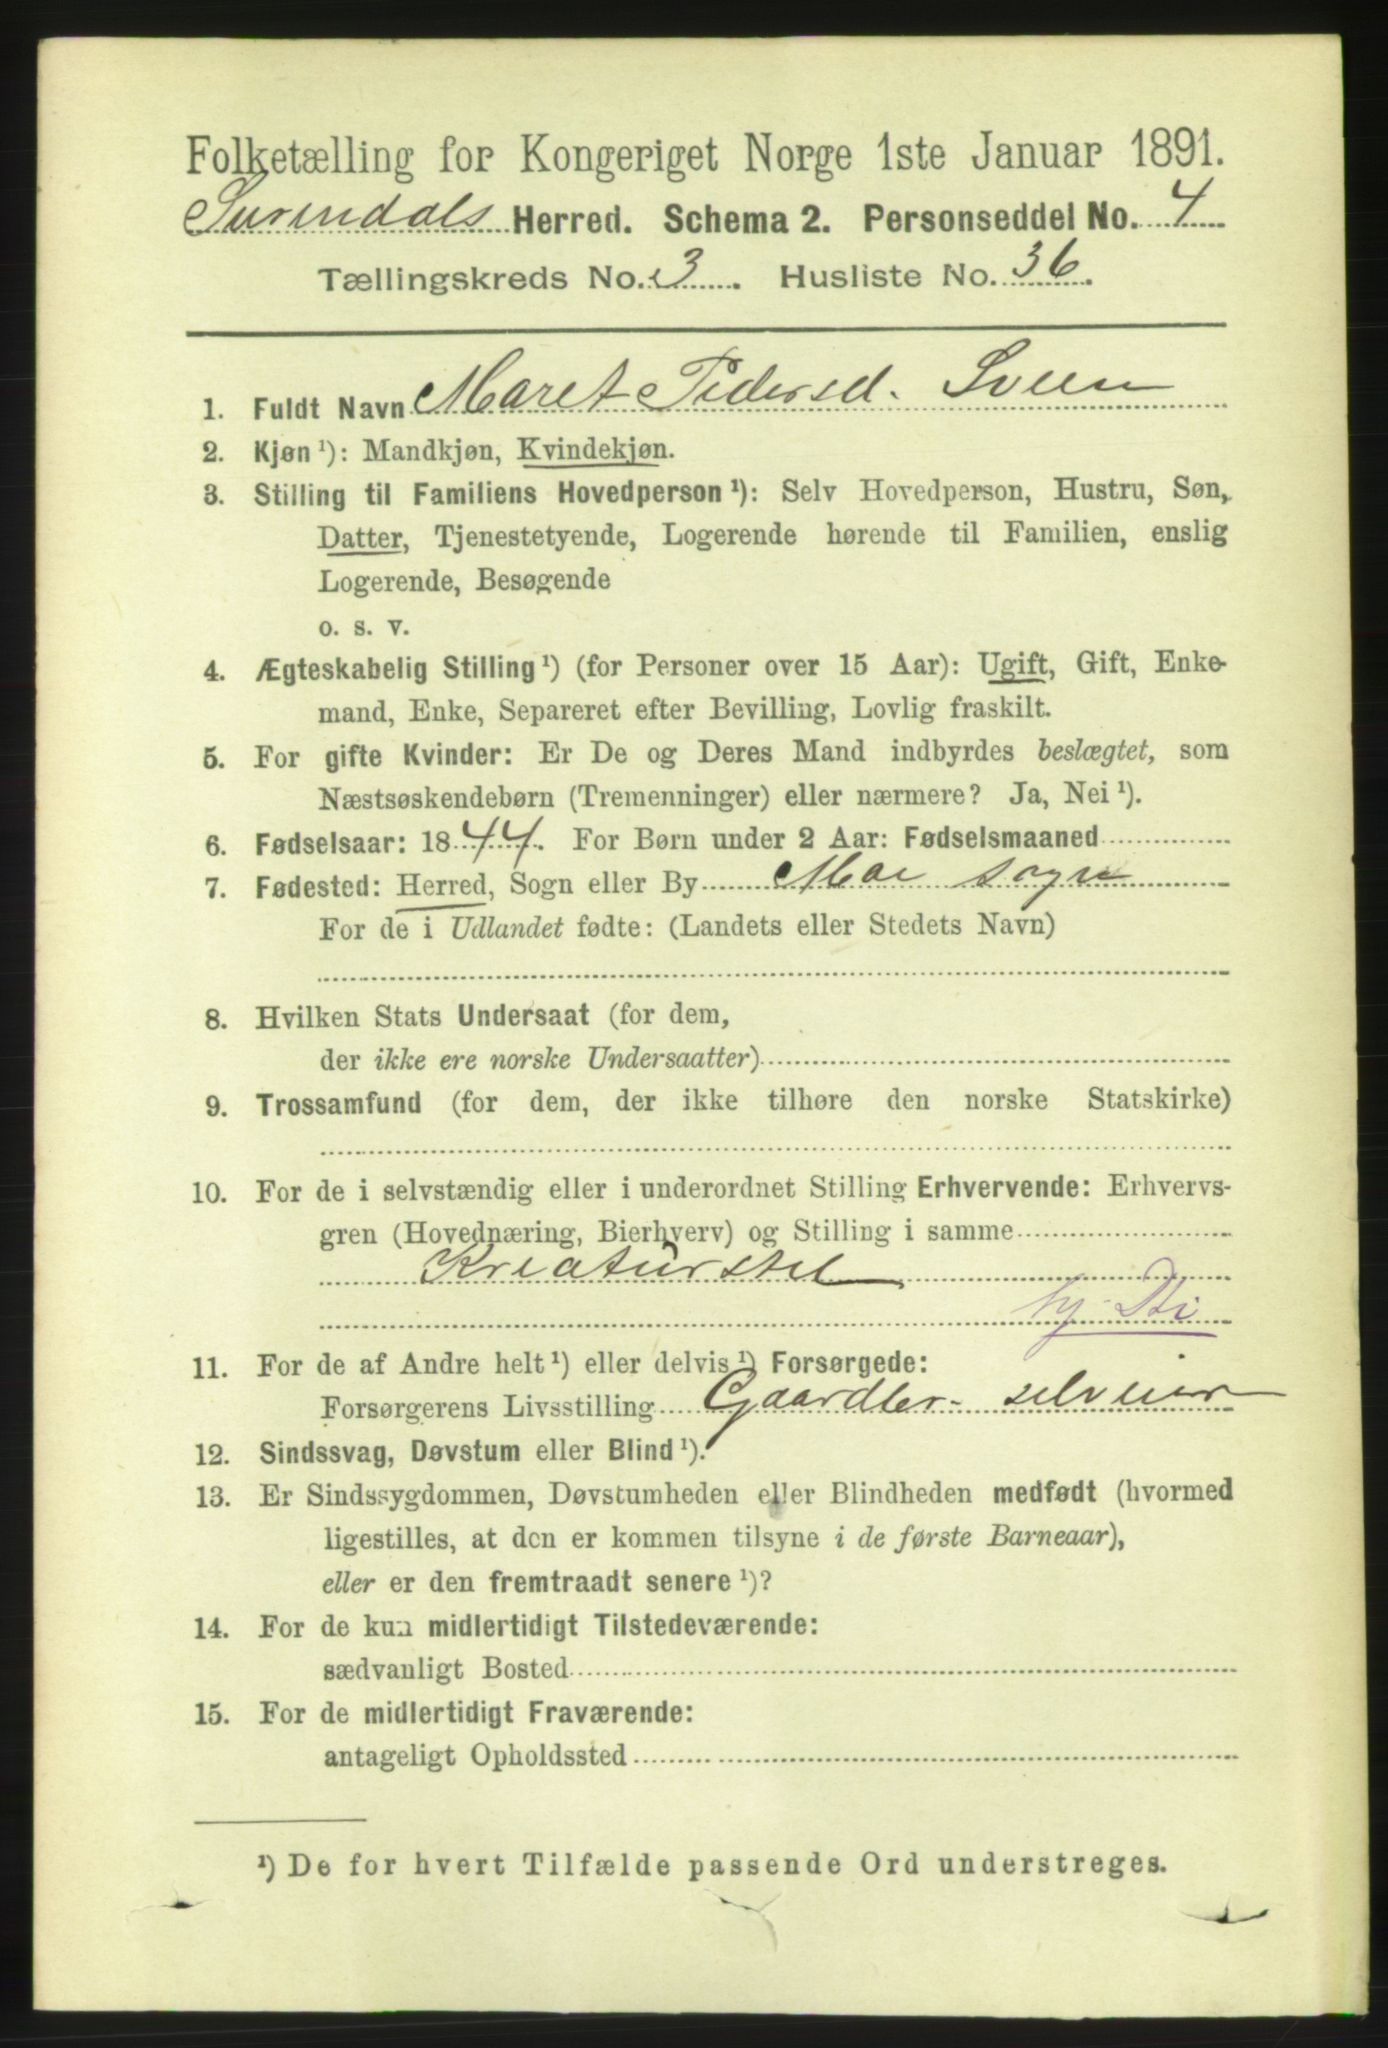 Folketælling for Kongeriget Norge 1ste Januar 1891.
Surendals Herred. Schema 2. Personseddel No. 4
Tællingskreds No. 3. Husliste No. 36.
1. Fuldt Navn Maret Pedersd. Sveen
2. Kjøn ¹): Mandkjøn, Kvindekjøn.
3. Stilling til Familiens Hovedperson ¹): Selv Hovedperson, Hustru, Søn,
Datter, Tjenestetyende, Logerende hørende til Familien, enslig
Logerende, Besøgende
o. s. v.
4. Ægteskabelig Stilling ¹) (for Personer over 15 Aar): Ugift, Gift, Enke-
mand, Enke, Separeret efter Bevilling, Lovlig fraskilt.
5. For gifte Kvinder: Er De og Deres Mand indbyrdes beslægtet, som
Næstsøskendebørn (Tremenninger) eller nærmere? Ja, Nei ¹).
6. Fødselsaar: 1844. For Børn under 2 Aar: Fødselsmaaned
7. Fødested: Herred, Sogn eller By Moe sogn
For de i Udlandet fødte: (Landets eller Stedets Navn)
8. Hvilken Stats Undersaat (for dem,
der ikke ere norske Undersaatter)
9. Trossamfund (for dem, der ikke tilhøre den norske Statskirke)
10. For de i selvstændig eller i underordnet Stilling Erhvervende: Erhvervs-
gren (Hovednæring, Bierhverv) og Stilling i samme
Kreaturstel
11. For de af Andre helt ¹) eller delvis ¹) Forsørgede:
Forsørgerens Livsstilling Gaardbr. selveier
12. Sindssvag, Døvstum eller Blind ¹).
13. Er Sindssygdommen, Døvstumheden eller Blindheden medfødt (hvormed
ligestilles, at den er kommen tilsyne i de første Barneaar),
eller er den fremtraadt senere ¹)?
14. For de kun midlertidigt Tilstedeværende:
sædvanligt Bosted
15. For de midlertidigt Fraværende:
antageligt Opholdssted
¹) De for hvert Tilfælde passende Ord understreges.